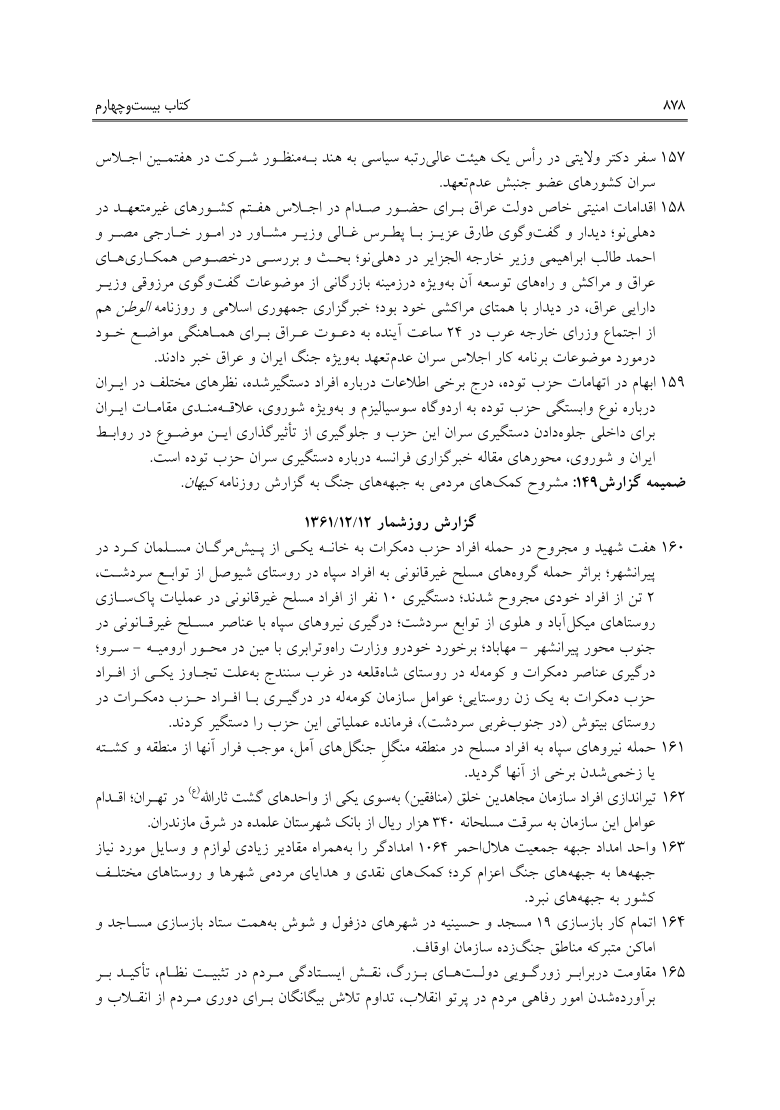 ۸۷۸ کتاب بیست‌وچهارم
۱۵۷ سفر دکتر ولایتی در رأس یک هیئت عالی‌رتبه سیاسی به هند به‌منظور شرکت در هفتمین اجلاس
سران کشورهای عضو جنبش عدم‌تعهد.
۱۵۸ اقدامات امنیتی خاص دولت عراق برای حضور صدام در اجلاس هفتم کشورهای غیرمتعهد در
دهلی‌نو؛ دیدار و گفت‌وگوی طارق عزیز با پطرس غالی وزیر مشاور در امور خارجی مصر و
احمد طالب ابراهیمی وزیر خارجه الجزایر در دهلی‌نو؛ بحث و بررسی درخصوص همکاری‌های
عراق و مراکش و راه‌های توسعه آن به‌ویژه درزمینه بازرگانی از موضوعات گفت‌وگوی مرزوقی وزیر
دارایی عراق، در دیدار با همتای مراکشی خود بود؛ خبرگزاری جمهوری اسلامی و روزنامه الوطن هم
از اجتماع وزرای خارجه عرب در ۲۴ ساعت آینده به دعوت عراق برای هماهنگی مواضع خود
درمورد موضوعات برنامه کار اجلاس سران عدم‌تعهد به‌ویژه جنگ ایران و عراق خبر دادند.
۱۵۹ ابهام در اتهامات حزب توده، درج برخی اطلاعات درباره افراد دستگیرشده، نظرهای مختلف در ایران
درباره نوع وابستگی حزب توده به اردوگاه سوسیالیزم و به‌ویژه شوروی، علاقه‌مندی مقامات ایران
برای داخلی جلوه‌دادن دستگیری سران این حزب و جلوگیری از تأثیرگذاری این موضوع در روابط
ایران و شوروی، محورهای مقاله خبرگزاری فرانسه درباره دستگیری سران حزب توده است.
ضمیمه گزارش۱۴۹: مشروح کمک‌های مردمی به جبهه‌های جنگ به گزارش روزنامه کیهان.
گزارش روزشمار ۱۳۶۱/۱۲/۱۲
۱۶۰ هفت شهید و مجروح در حمله افراد حزب دمکرات به خانه یکی از پیش‌مرگان مسلمان کرد در
پیرانشهر؛ براثر حمله گروه‌های مسلح غیرقانونی به افراد سپاه در روستای شیوصل از توابع سردشت،
۲ تن از افراد خودی مجروح شدند؛ دستگیری ۱۰ نفر از افراد مسلح غیرقانونی در عملیات پاک‌سازی
روستاهای میکل‌آباد و هلوی از توابع سردشت؛ درگیری نیروهای سپاه با عناصر مسلح غیرقانونی در
جنوب محور پیرانشهر - مهاباد؛ برخورد خودرو وزارت راه‌وترابری با مین در محور ارومیه - سرو؛
درگیری عناصر دمکرات و کومه‌له در روستای شاه‌قلعه در غرب سنندج به‌علت تجاوز یکی از افراد
حزب دمکرات به یک زن روستایی؛ عوامل سازمان کومه‌له در درگیری با افراد حزب دمکرات در
روستای بیتوش (در جنوب‌غربی سردشت)، فرمانده عملیاتی این حزب را دستگیر کردند.
۱۶۱ حمله نیروهای سپاه به افراد مسلح در منطقه منگلِ جنگل‌های آمل، موجب فرار آنها از منطقه و کشته
یا زخمی‌شدن برخی از آنها گردید.
۱۶۲ تیراندازی افراد سازمان مجاهدین خلق (منافقین) به‌سوی یکی از واحدهای گشت ثارالله(ع) در تهران؛ اقدام
عوامل این سازمان به سرقت مسلحانه ۳۴۰ هزار ریال از بانک شهرستان علمده در شرق مازندران.
۱۶۳ واحد امداد جبهه جمعیت هلال‌احمر ۱۰۶۴ امدادگر را به‌همراه مقادیر زیادی لوازم و وسایل مورد نیاز
جبهه‌ها به جبهه‌های جنگ اعزام کرد؛ کمک‌های نقدی و هدایای مردمی شهرها و روستاهای مختلف
کشور به جبهه‌های نبرد.
۱۶۴ اتمام کار بازسازی ۱۹ مسجد و حسینیه در شهرهای دزفول و شوش به‌همت ستاد بازسازی مساجد و
اماکن متبرکه مناطق جنگ‌زده سازمان اوقاف.
۱۶۵ مقاومت دربرابر زورگویی دولت‌های بزرگ، نقش ایستادگی مردم در تثبیت نظام، تأکید بر
برآورده‌شدن امور رفاهی مردم در پرتو انقلاب، تداوم تلاش بیگانگان برای دوری مردم از انقلاب و